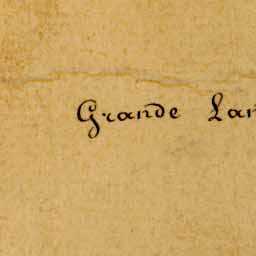 Grande Lar